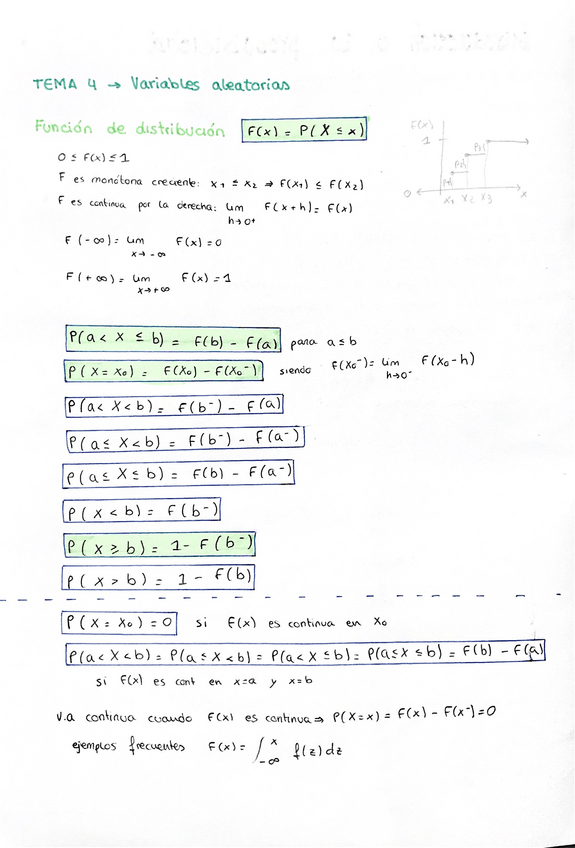 TEMA 4 → Variables aleatorias
Función de distribución F(x) = P(X ≤ x)
F(x)
1
P3
P2
0
x₁ x₂ x₃ x
0 ≤ F(x) ≤ 1
F es monótona creciente: x₁ ≤ x₂ ⇒ F(x₁) ≤ F(x₂)
F es continua por la derecha: lim F(x+h) = F(x)
h→0⁺
F(-∞) = lim F(x) = 0
x→-∞
F(+∞) = lim F(x) = 1
x→+∞
P(a < X ≤ b) = F(b) - F(a) para a ≤ b
P(X = x₀) = F(x₀) - F(x₀⁻) siendo F(x₀⁻) = lim F(x₀-h)
h→0⁻
P(a < X < b) = F(b⁻) - F(a)
P(a ≤ X < b) = F(b⁻) - F(a⁻)
P(a ≤ X ≤ b) = F(b) - F(a⁻)
P(X < b) = F(b⁻)
P(X ≥ b) = 1 - F(b⁻)
P(X > b) = 1 - F(b)
P(X = x₀) = 0 si F(x) es continua en x₀
P(a < X < b) = P(a ≤ X < b) = P(a < X ≤ b) = P(a ≤ X ≤ b) = F(b) - F(a)
si F(x) es cont en x=a y x=b
v.a continua cuando F(x) es continua ⇒ P(X=x) = F(x) - F(x⁻) = 0
ejemplos frecuentes F(x) = ∫₋∞ˣ f(z)dz